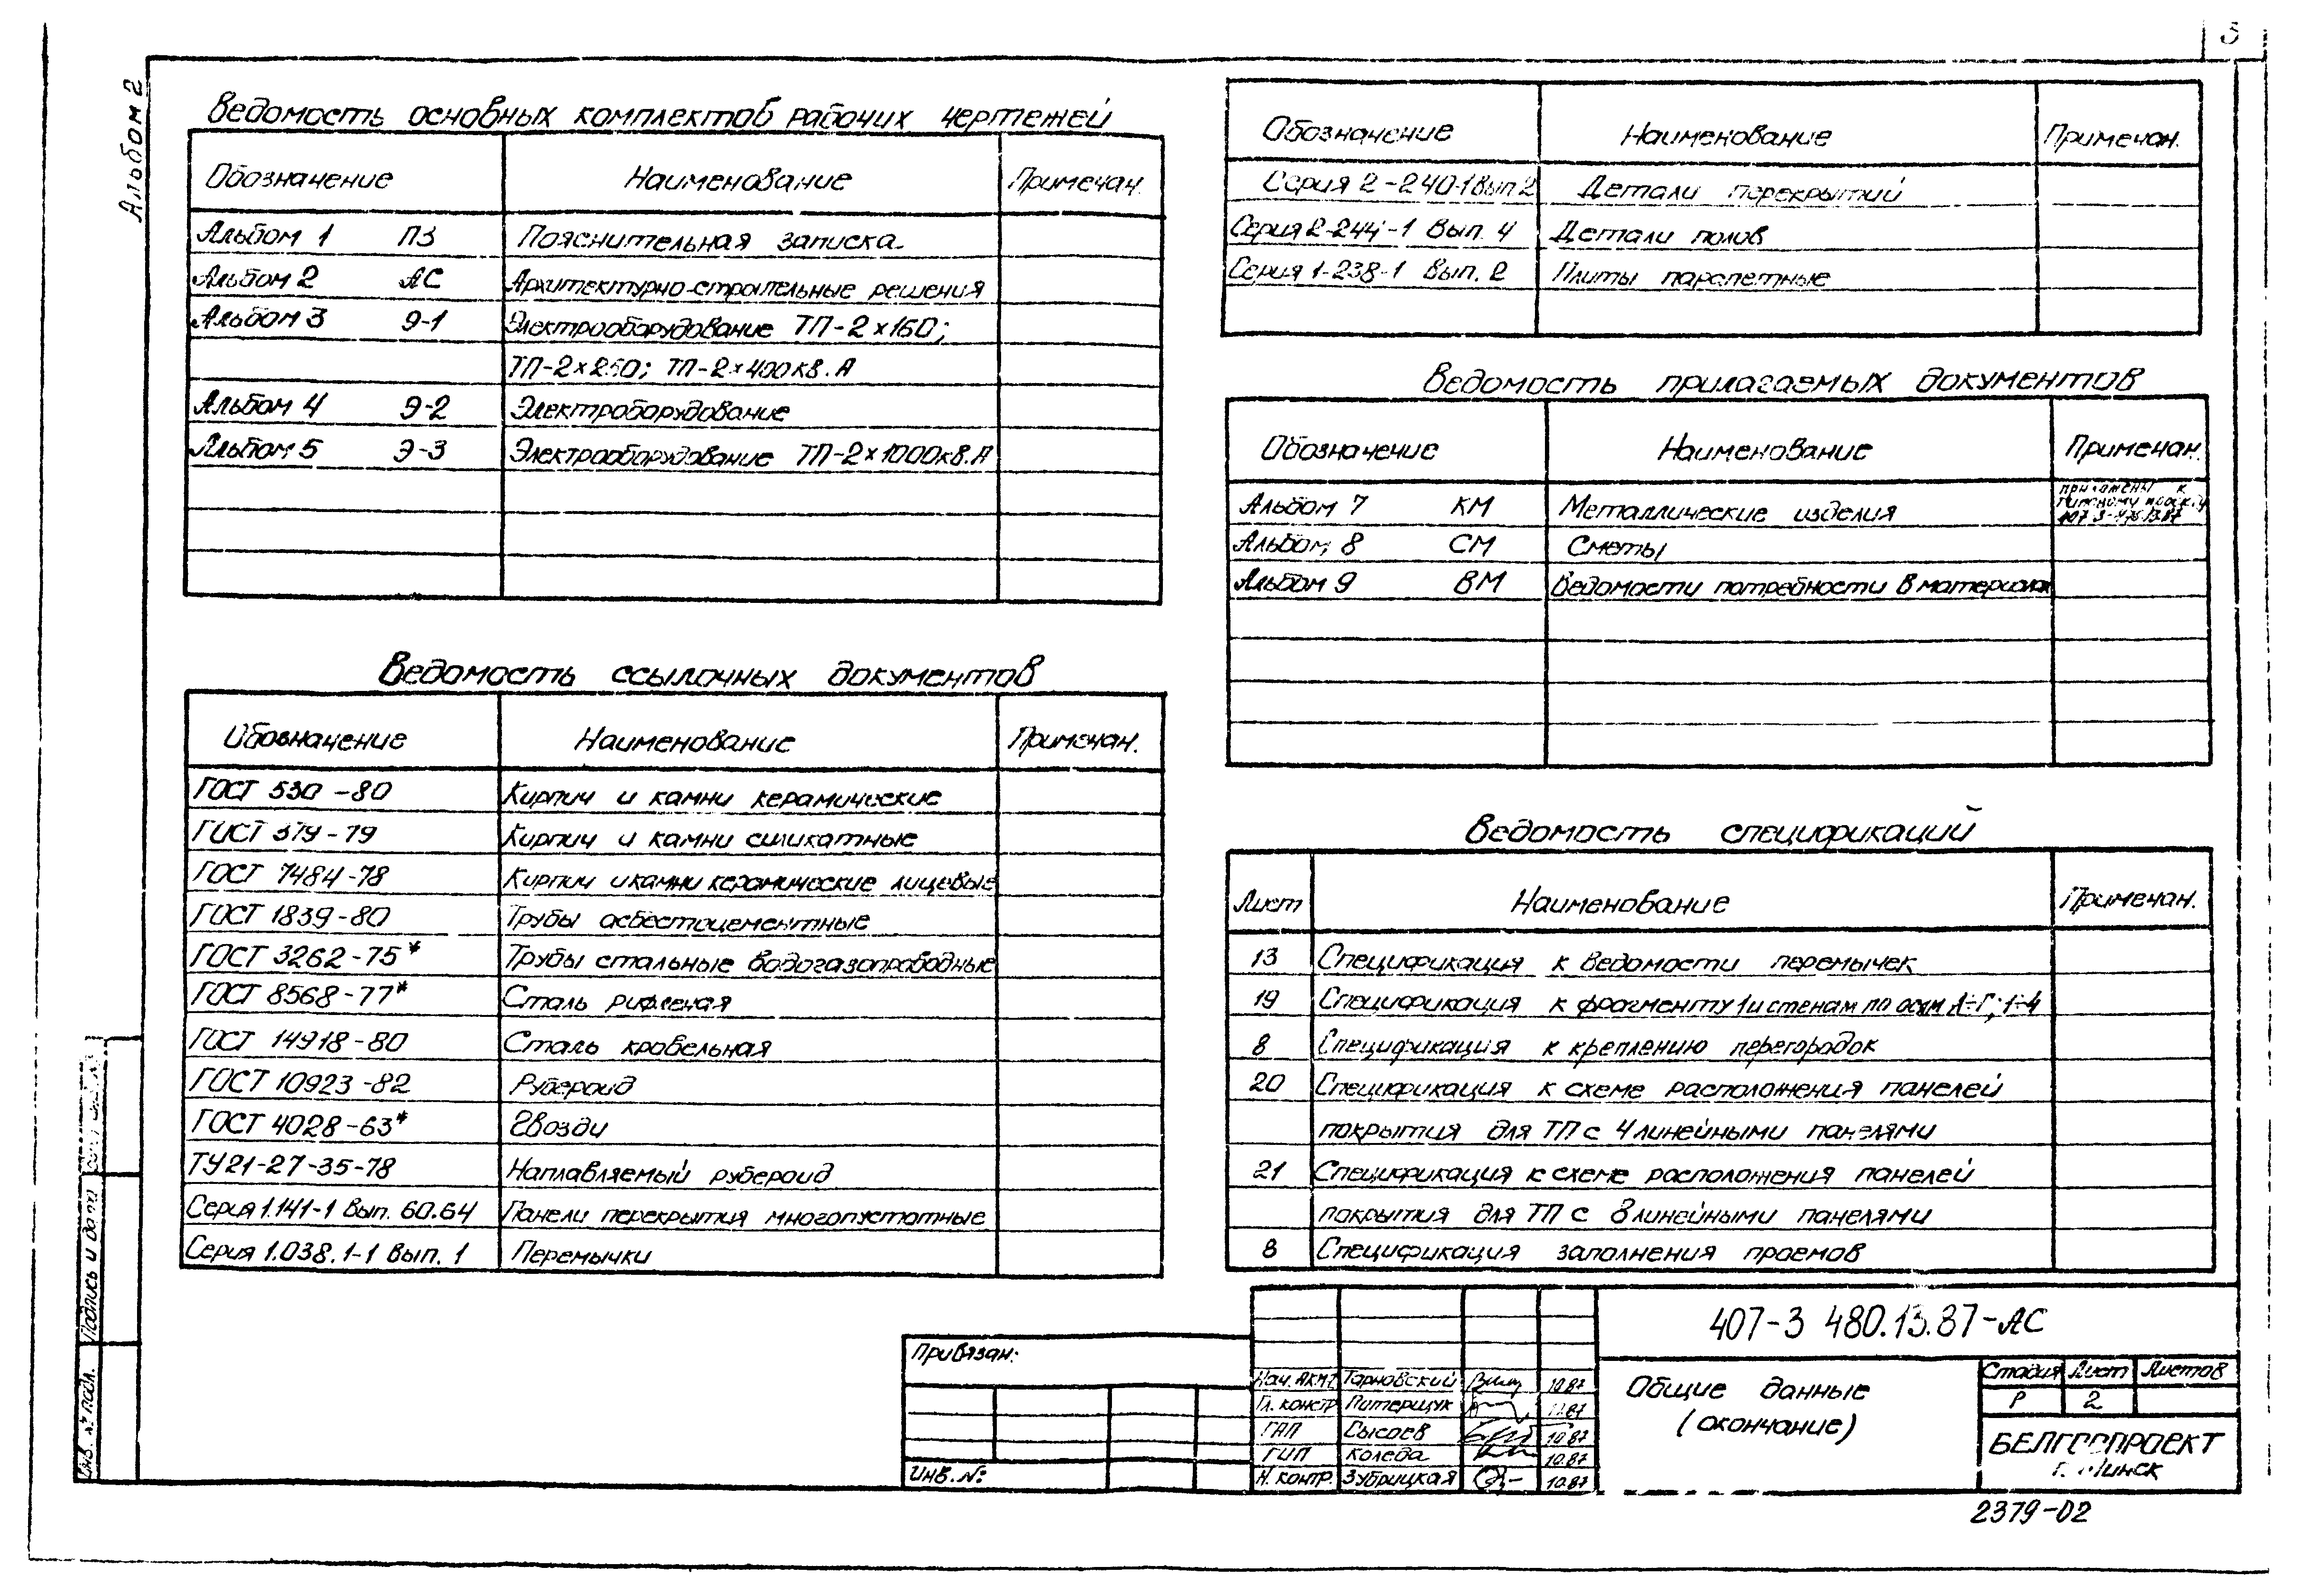 3
Альбом 2
Ведомость основных комплектов рабочих чертежей
Обозначение Наименование Примечан.
Альбом 1 ПЗ Пояснительная записка
Альбом 2 АС Архитектурно-строительные решения
Альбом 3 Э-1 Электрооборудование ТП-2×160;
ТП-2×250; ТП-2×400кВ.А
Альбом 4 Э-2 Электроборудование
Альбом 5 Э-3 Электрооборудование ТП-2×1000кВ.А
Ведомость ссылочных документов
Обозначение Наименование Примечан.
ГОСТ 530-80 Кирпич и камни керамические
ГОСТ 379-79 Кирпич и камни силикатные
ГОСТ 7484-78 Кирпич и камни керамические лицевые
ГОСТ 1839-80 Трубы асбестоцементные
ГОСТ 3262-75* Трубы стальные водогазопроводные
ГОСТ 8568-77* Сталь рифленая
ГОСТ 14918-80 Сталь кровельная
ГОСТ 10923-82 Рубероид
ГОСТ 4028-63* Гвозди
ТУ21-27-35-78 Наплавляемый рубероид
Серия 1.141-1 вып. 60.64 Панели перекрытия многопустотные
Серия 1.038.1-1 вып. 1 Перемычки
Обозначение Наименование Примечан.
Серия 2-240-1 вып 2 Детали перекрытий
Серия 2-244-1 вып. 4 Детали полов
Серия 1-238-1 вып. 2 Плиты парапетные
Ведомость прилагаемых документов
Обозначение Наименование Примечан.
Альбом 7 КМ Металлические изделия приложены к
типовому
Альбом 8 СМ Сметы
Альбом 9 ВМ Ведомости потребности в материалах
Ведомость спецификаций
Лист Наименование Примечан.
13 Спецификация к ведомости перемычек
19 Спецификация к фрагменту 1 и стенам по осям А÷Г; 1÷4
8 Спецификация к креплению перегородок
20 Спецификация к схеме расположения панелей
покрытия для ТП с 4 линейными панелями
21 Спецификация к схеме расположения панелей
покрытия для ТП с 8 линейными панелями
8 Спецификация заполнения проемов
Подпись и дата
Инв. № подл.
Привязан:
Инв. №:
Тарновский 10.87
Гл. констр Питерщук
ГАП Сысоев 10.87
ГИП Коледа 10.87
Н. контр. Зубрицкая 10.87
407-3 480.13.87-АС
Общие данные
(окончание)
Стадия Лист Листов
Р 2
БЕЛГОСПРОЕКТ
г. Минск
2379-02